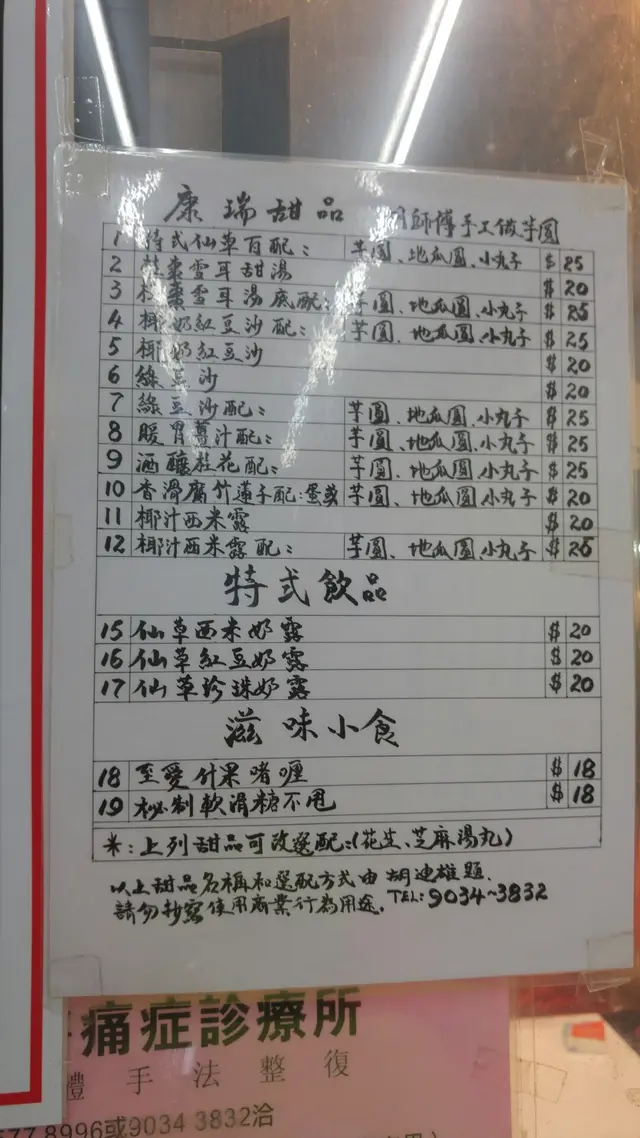 康瑞甜品 師傅手工做芋圓
1 特式仙草百配： 芋圓、地瓜圓、小丸子 $ 25
2 桂棗雪耳甜湯 $ 20
3 桂棗雪耳湯底配： 芋圓、地瓜圓、小丸子 $ 25
4 椰奶紅豆沙配： 芋圓、地瓜圓、小丸子 $ 25
5 椰奶紅豆沙 $ 20
6 綠豆沙 $ 20
7 綠豆沙配： 芋圓、地瓜圓、小丸子 $ 25
8 暖胃薑汁配： 芋圓、地瓜圓、小丸子 $ 25
9 酒釀桂花配： 芋圓、地瓜圓、小丸子 $ 25
10 香滑腐竹蓮子配：蛋或 芋圓、地瓜圓、小丸子 $ 20
11 椰汁西米露 $ 20
12 椰汁西米露配： 芋圓、地瓜圓、小丸子 $ 25
特式飲品
15 仙草西米奶露 $ 20
16 仙草紅豆奶露 $ 20
17 仙草珍珠奶露 $ 20
滋味小食
18 至愛什果啫喱 $ 18
19 秘制軟滑糖不甩 $ 18
米：上列甜品可改選配：(花生、芝麻湯丸)
以上甜品名稱和選配方式由胡迪雄題.
請勿抄寫使用商業行為用途. TEL: 9034-3832
痛症診療所
體手法整復
577 8996或9034 3832洽